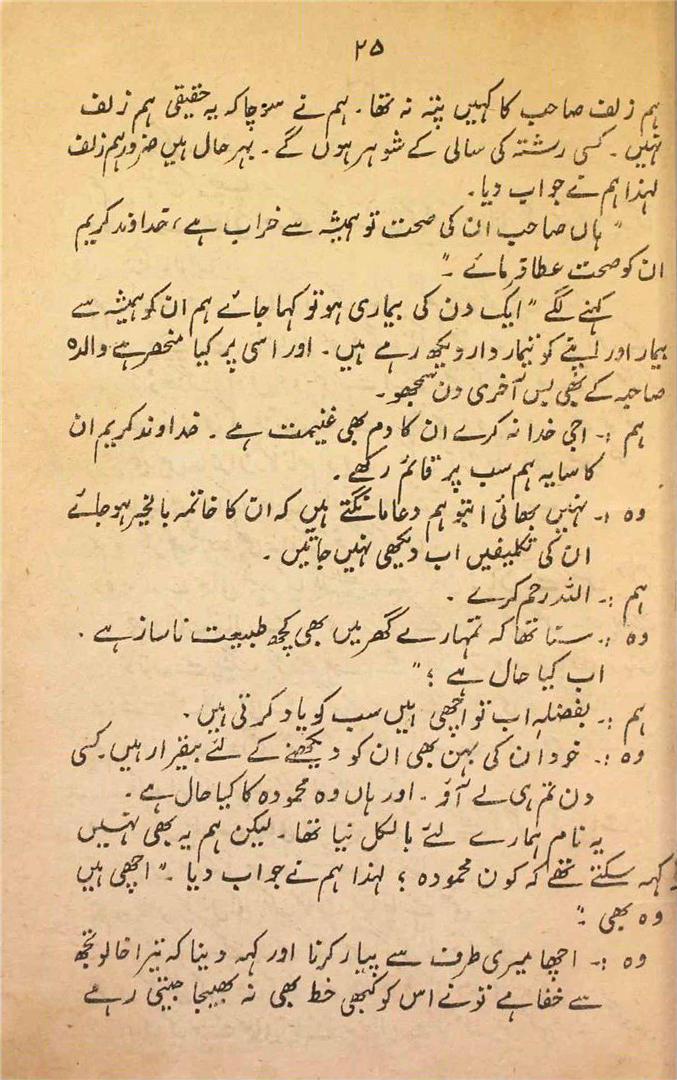 ۲۵
ہم زلف صاحب کا کہیں پتہ نہ تھا۔ ہم نے سوچا کہ یہ حقیقی ہم زلف
نہیں۔ کسی رشتہ کی سالی کے شوہر ہوں گے۔ بہر حال ہیں ضرور ہم زلف
لہذا ہم نے جواب دیا۔
"ہاں صاحب ان کی صحت تو ہمیشہ سے خراب ہے، خداوند کریم
ان کو صحت عطا فرمائے۔"
کہنے لگے "ایک دن کی بیماری ہو تو کہا جائے ہم ان کو ہمیشہ سے
بیمار اور اپنے کو تیمار دار دیکھ رہے ہیں۔ اور اسی پر کیا منحصر ہے والدہ
صاحبہ کے بھی بس آخری دن سمجھو۔
ہم :۔ اجی خدا نہ کرے ان کا دم بھی غنیمت ہے۔ خداوند کریم ان
کا سایہ ہم سب پر قائم رکھے۔
وہ :۔ نہیں بھائی اب تو ہم دعا مانگتے ہیں کہ ان کا خاتمہ بالخیر ہو جائے
ان کی تکلیفیں اب دیکھی نہیں جاتیں۔
ہم :۔ اللہ رحم کرے۔
وہ :۔ سنا تھا کہ تمہارے گھر میں بھی کچھ طبیعت ناساز ہے۔
اب کیا حال ہے ؟"
ہم :۔ بفضلہ اب تو اچھی ہیں سب کو یاد کرتی ہیں۔
وہ :۔ خود ان کی بہن بھی ان کو دیکھنے کے لئے بیقرار ہیں۔ کسی
دن تم ہی لے آؤ۔ اور ہاں وہ محمودہ کا کیا حال ہے۔
یہ نام ہمارے لئے بالکل نیا تھا۔ لیکن ہم یہ بھی نہیں
کہہ سکتے تھے کہ کون محمودہ ؟ لہذا ہم نے جواب دیا۔ "اچھی ہیں
وہ بھی۔"
وہ :۔ اچھا میری طرف سے پیار کرنا اور کہہ دینا کہ تیرا خالو تجھ
سے خفا ہے تو نے اس کو کبھی خط بھی نہ بھیجا جیتی رہے